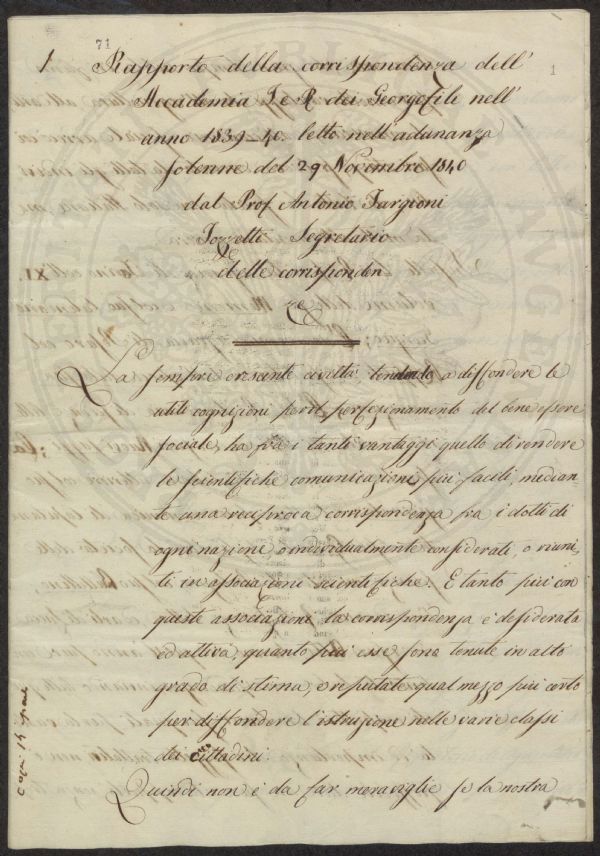 71
1. Rapporto della corrispondenza dell' 1
Accademia I e R. dei Georgofili nell'
anno 1839–40. letto nell'adunanza
solenne del 29 Novembre 1840
dal Prof. Antonio Targioni
Tozzetti Segretario
delle corrisponden
ze
La sempre crescente civiltà tendendo a diffondere le
utili cognizioni per il perfezionamento del bene essere
sociale, ha fra i tanti vantaggi quello di rendere
le scientifiche comunicazioni più facili, median-
te una reciproca corrispondenza fra i dotti di
ogni nazione, o individualmente considerati, o riuni-
ti in associazioni scientifiche. E tanto più con
queste associazioni la corrispondenza è desiderata
ed attiva, quanto più esse sono tenute in alto
grado di stima, e reputate qual mezzo più certo
per diffondere l'istruzione nelle varie classi
dei cittadini.
Quindi non è da far meraviglie se la nostra